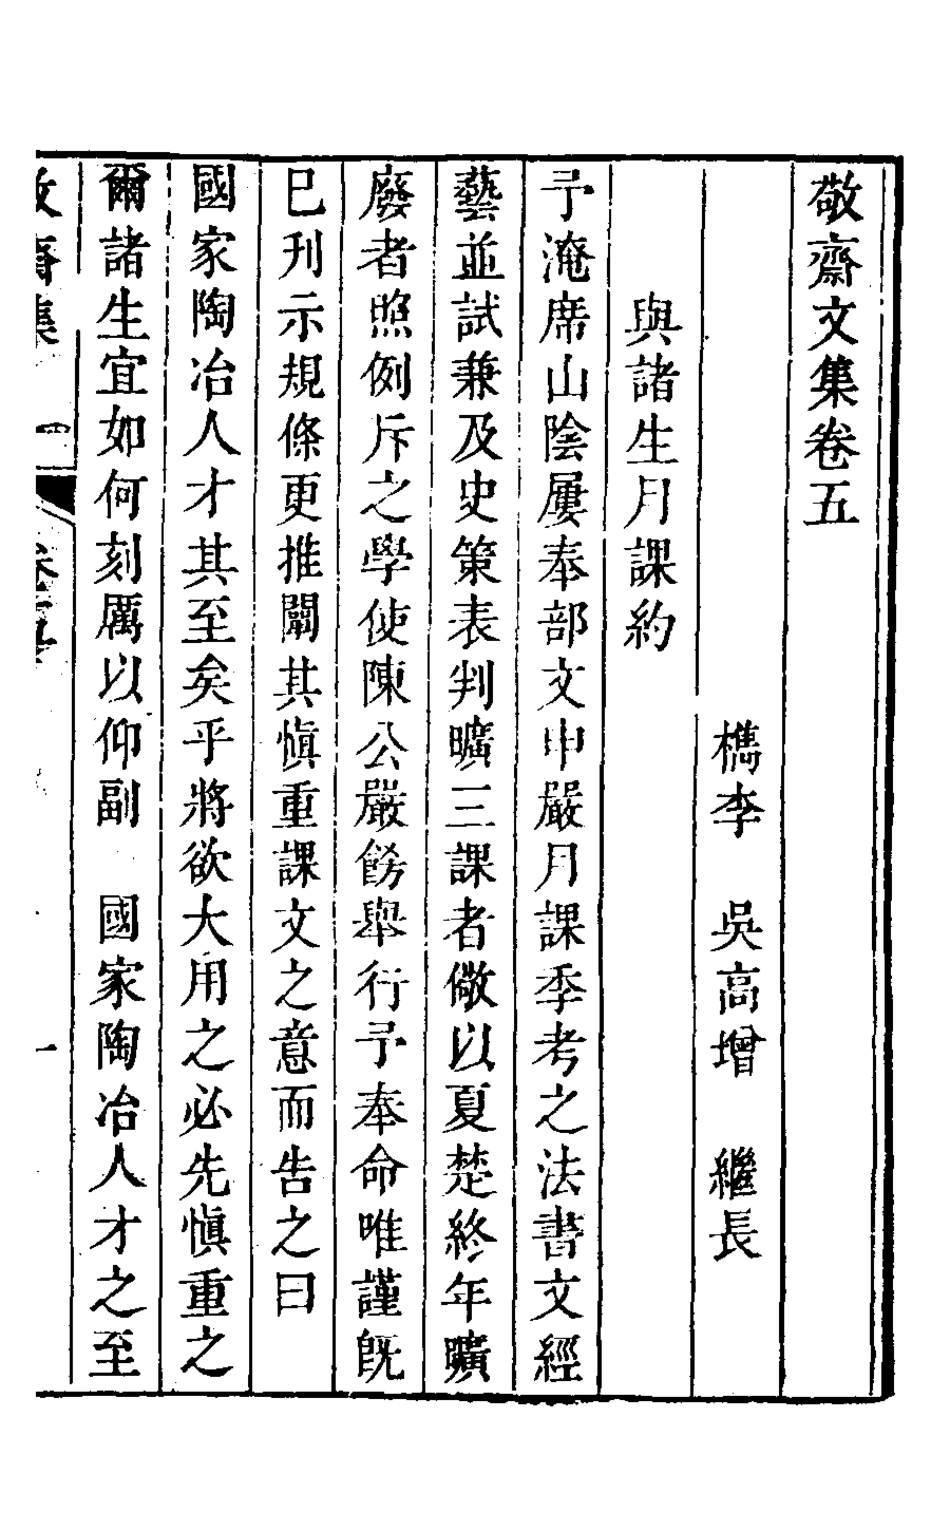 敬齋文集卷五
檇李　吳高增　繼長
與諸生月課約
予淹席山陰屢奉部文申嚴月課季考之法書文經
藝並試兼及史策表判曠三課者儆以夏楚終年曠
廢者照例斥之學使陳公嚴飭舉行予奉命唯謹旣
巳刊示規條更推闡其愼重課文之意而告之曰
國家陶冶人才其至矣乎將欲大用之必先愼重之
爾諸生宜如何刻厲以仰副　國家陶冶人才之至
敬齋集　卷五　一